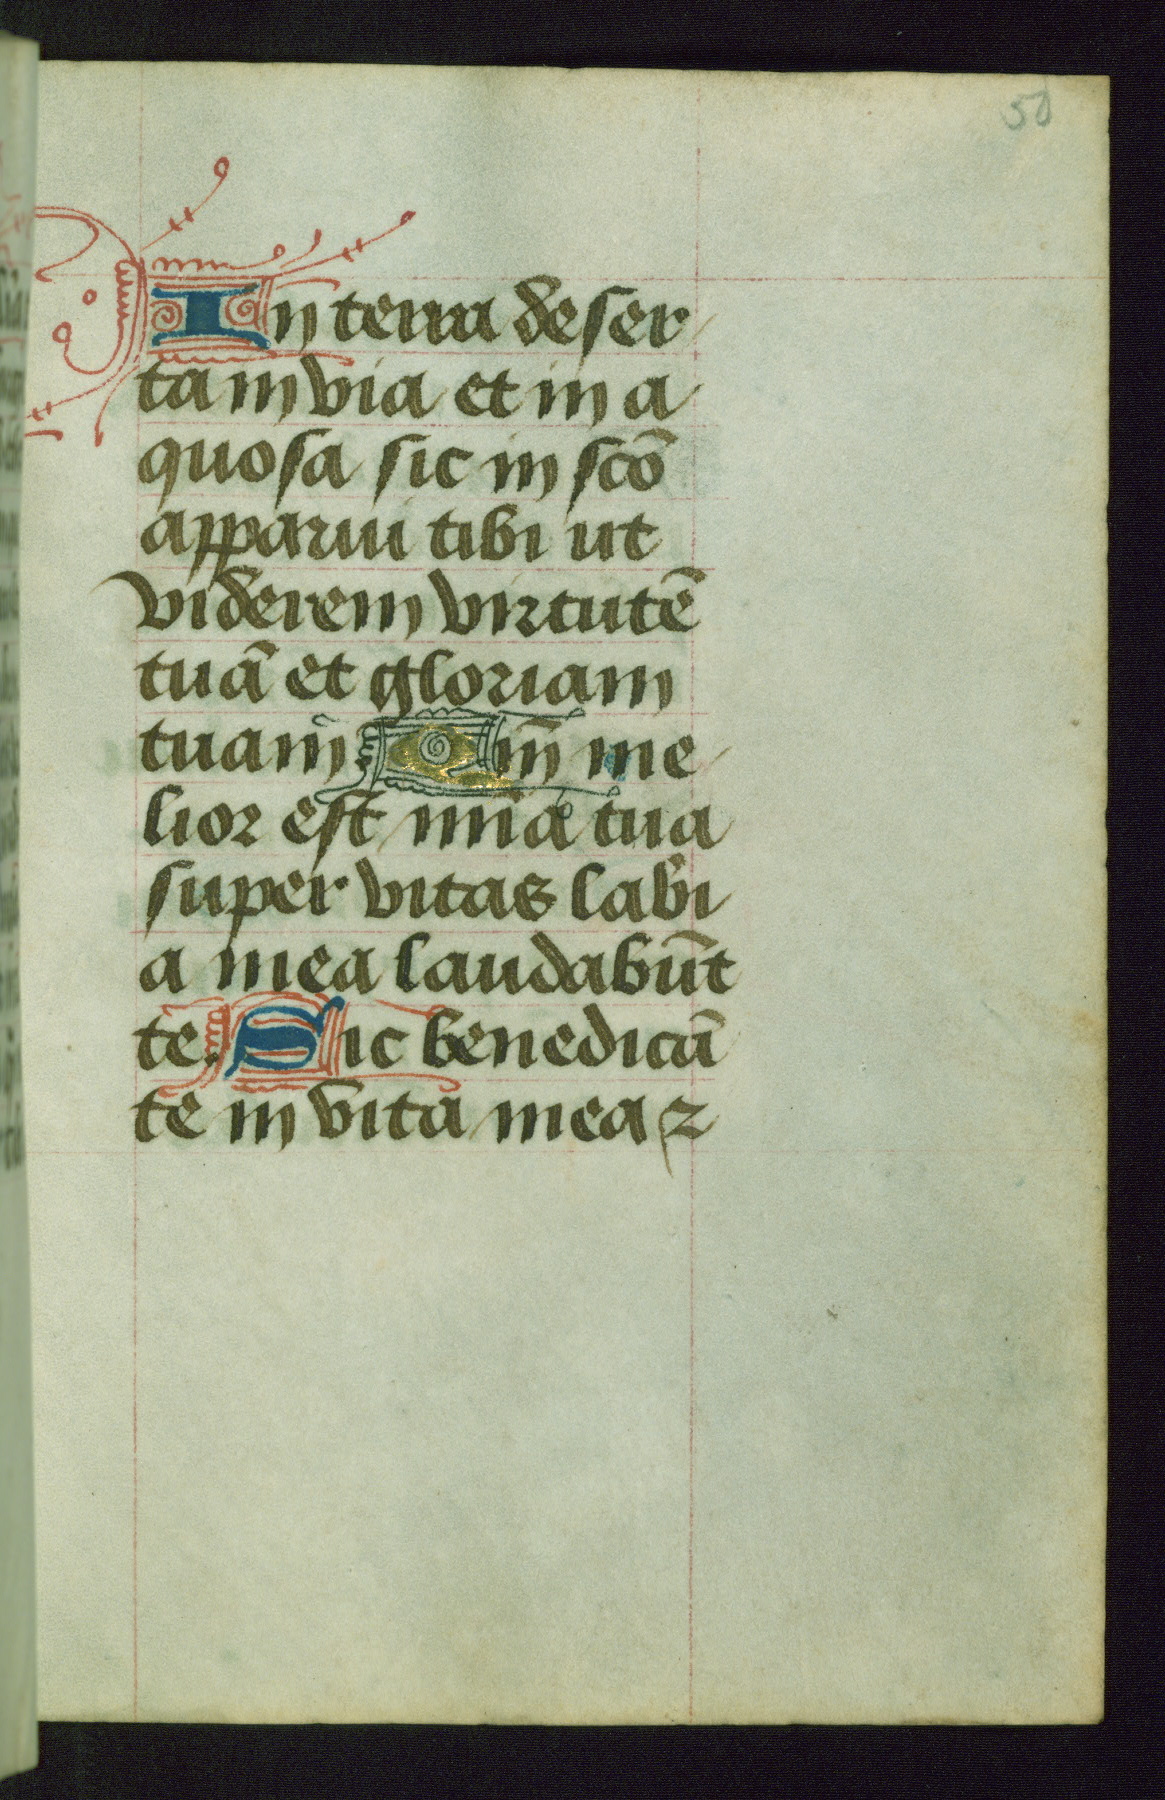 50
In terra deser
ta in via et in a
quosa sic in scō
apparui tibi ut
viderem virtutē
tuā et gloriam
tuam Qm̄ me
lior est mīa tua
super vitas labi
a mea laudabūt
te. Sic benedicā
te in vita mea ⁊